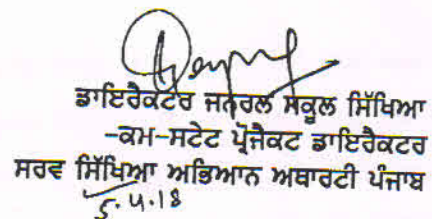 ਡਾਇਰੈਕਟਰ ਜਨਰਲ ਸਕੂਲ ਸਿੱਖਿਆ
-ਕਮ-ਸਟੇਟ ਪ੍ਰੋਜੈਕਟ ਡਾਇਰੈਕਟਰ
ਸਰਵ ਸਿੱਖਿਆ ਅਭਿਆਨ ਅਥਾਰਟੀ ਪੰਜਾਬ
5.4.18